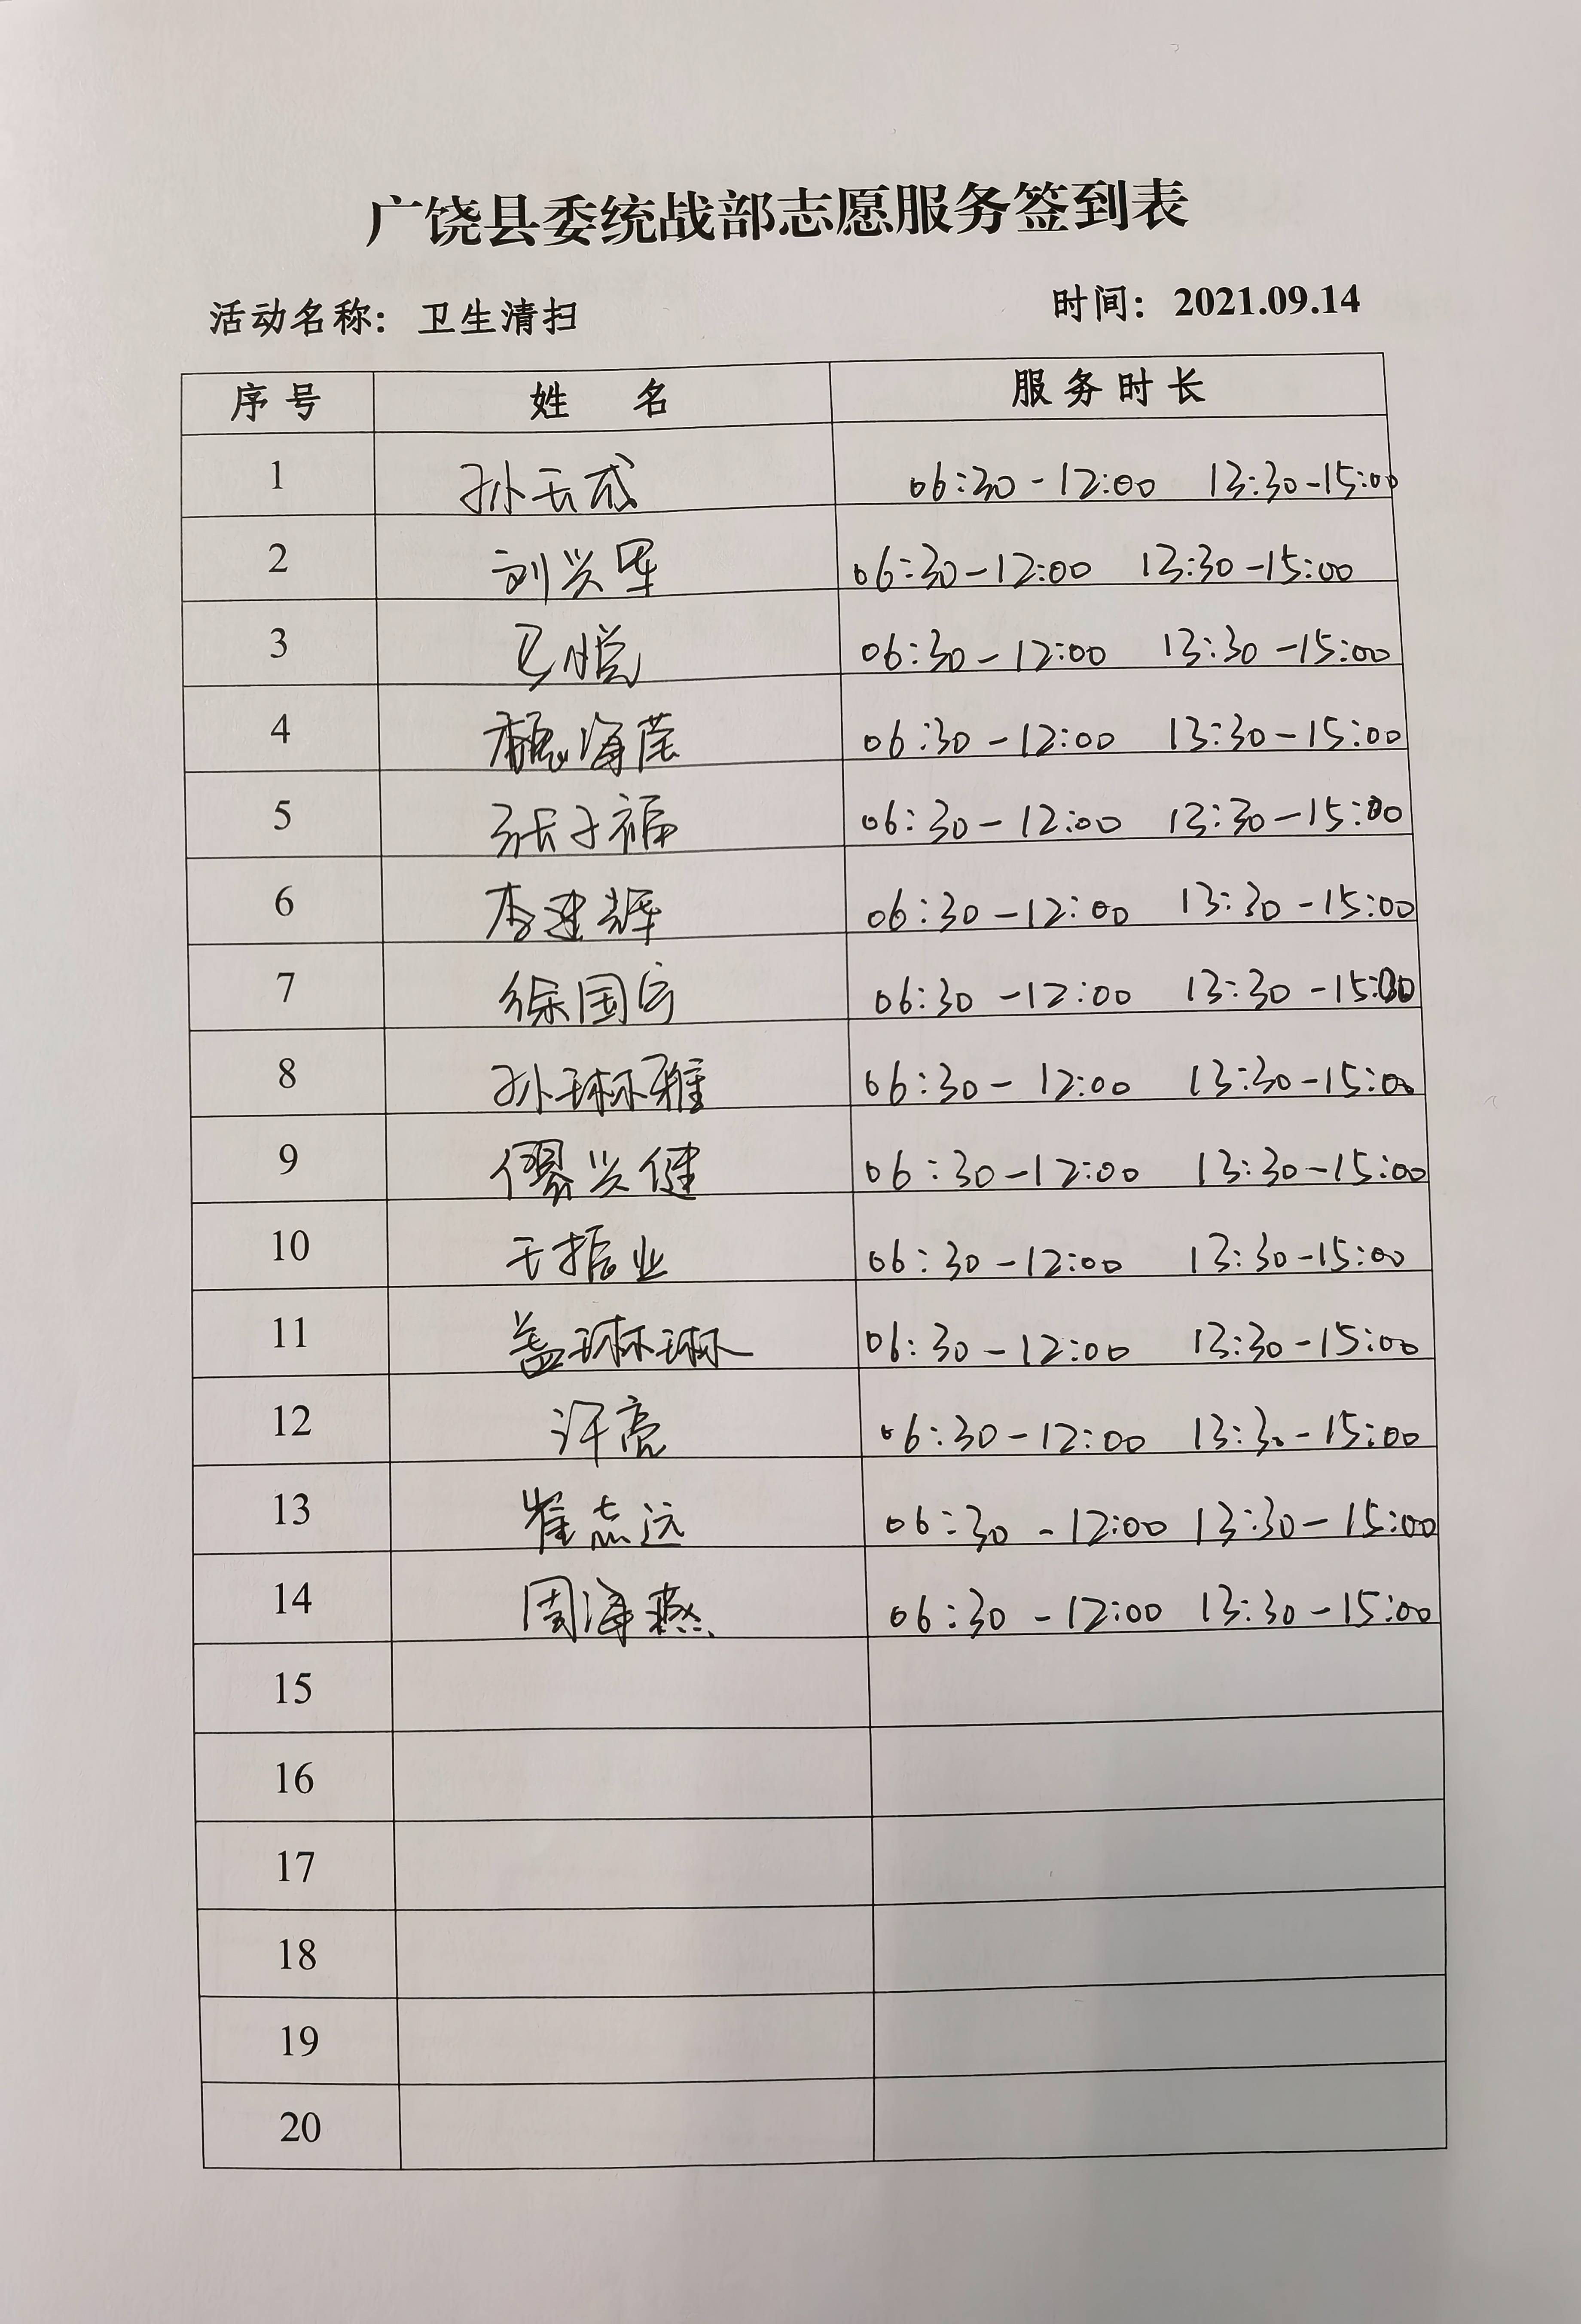 广饶县委统战部志愿服务签到表
活动名称：卫生清扫 时间：2021.09.14
序号 姓 名 服务时长
1 孙 06:30-12:00 13:30-15:00
2 刘兴军 06:30-12:00 13:30-15:00
3 悦 06:30-12:00 13:30-15:00
4 魏海莲 06:30-12:00 13:30-15:00
5 张子福 06:30-12:00 13:30-15:00
6 李建辉 06:30-12:00 13:30-15:00
7 徐国 06:30-12:00 13:30-15:00
8 孙琳雅 06:30-12:00 13:30-15:00
9 兴健 06:30-12:00 13:30-15:00
10 王振业 06:30-12:00 13:30-15:00
11 盖琳琳 06:30-12:00 13:30-15:00
12 许亮 06:30-12:00 13:30-15:00
13 崔志远 06:30-12:00 13:30-15:00
14 周海燕 06:30-12:00 13:30-15:00
15
16
17
18
19
20